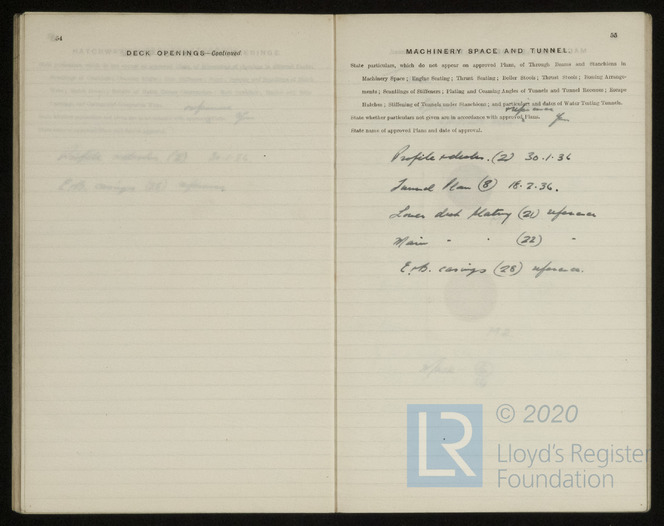 54
DECK OPENINGS—Continued
55
MACHINERY SPACE AND TUNNEL.
State particulars, which do not appear on approved Plans, of Through Beams and Stanchions in
Machinery Space; Engine Seating; Thrust Seating; Boiler Stools; Thrust Stools; Boxing Arrange-
ments; Scantlings of Stiffeners; Plating and Coaming Angles of Tunnels and Tunnel Recesses; Escape
Hatches; Stiffening of Tunnels under Stanchions; and particulars and dates of Water Testing Tunnels.
State whether particulars not given are in accordance with approved Plans.
State name of approved Plans and date of approval.
Profile & decks. (2) 30.1.36
Tunnel Plan (8) 18.2.36.
Lower deck plating (21)
Main " " (22) "
E & B. casings (28)
© 2020
LR
Lloyd's Register
Foundation